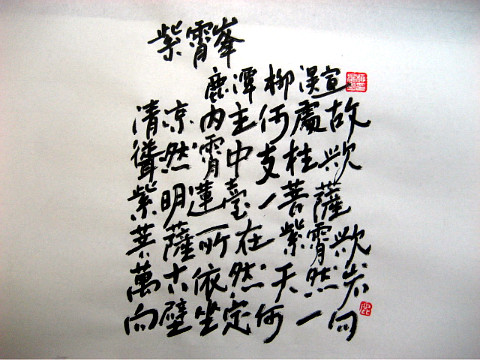 紫霄峯
鹿潭 柳 宣
清凉内主何處故
聳然霄中支柱欤
紫明蓮臺一菩薩
薩所在紫霄欤
萬古依然天然岩
向壁坐定何一向